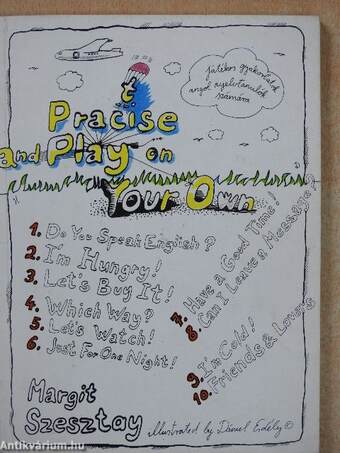 játékos gyakorlatok
angol nyelvtanulók
számára
t
Pracise
and Play on
Your Own
1. Do You Speak English?
2. I'm Hungry!
3. Let's Buy It!
4. Which Way?
5. Let's Watch!
6. Just For One Night!
7. Have a Good Time!
8. Can I Leave a Message?
9. I'm Cold!
10. Friends & Lovers
Margit
Szesztay
Illustrated by Dániel Erdély ©
Antikvárium.hu